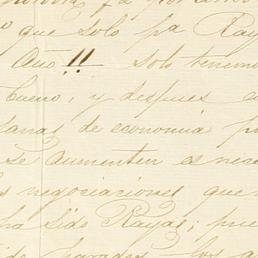 que solo pa Ray
Año!! solo tenemo
bueno, y despues
de economia p
se aumenten es nece
negociaciones que
ha sido Rayas; pue